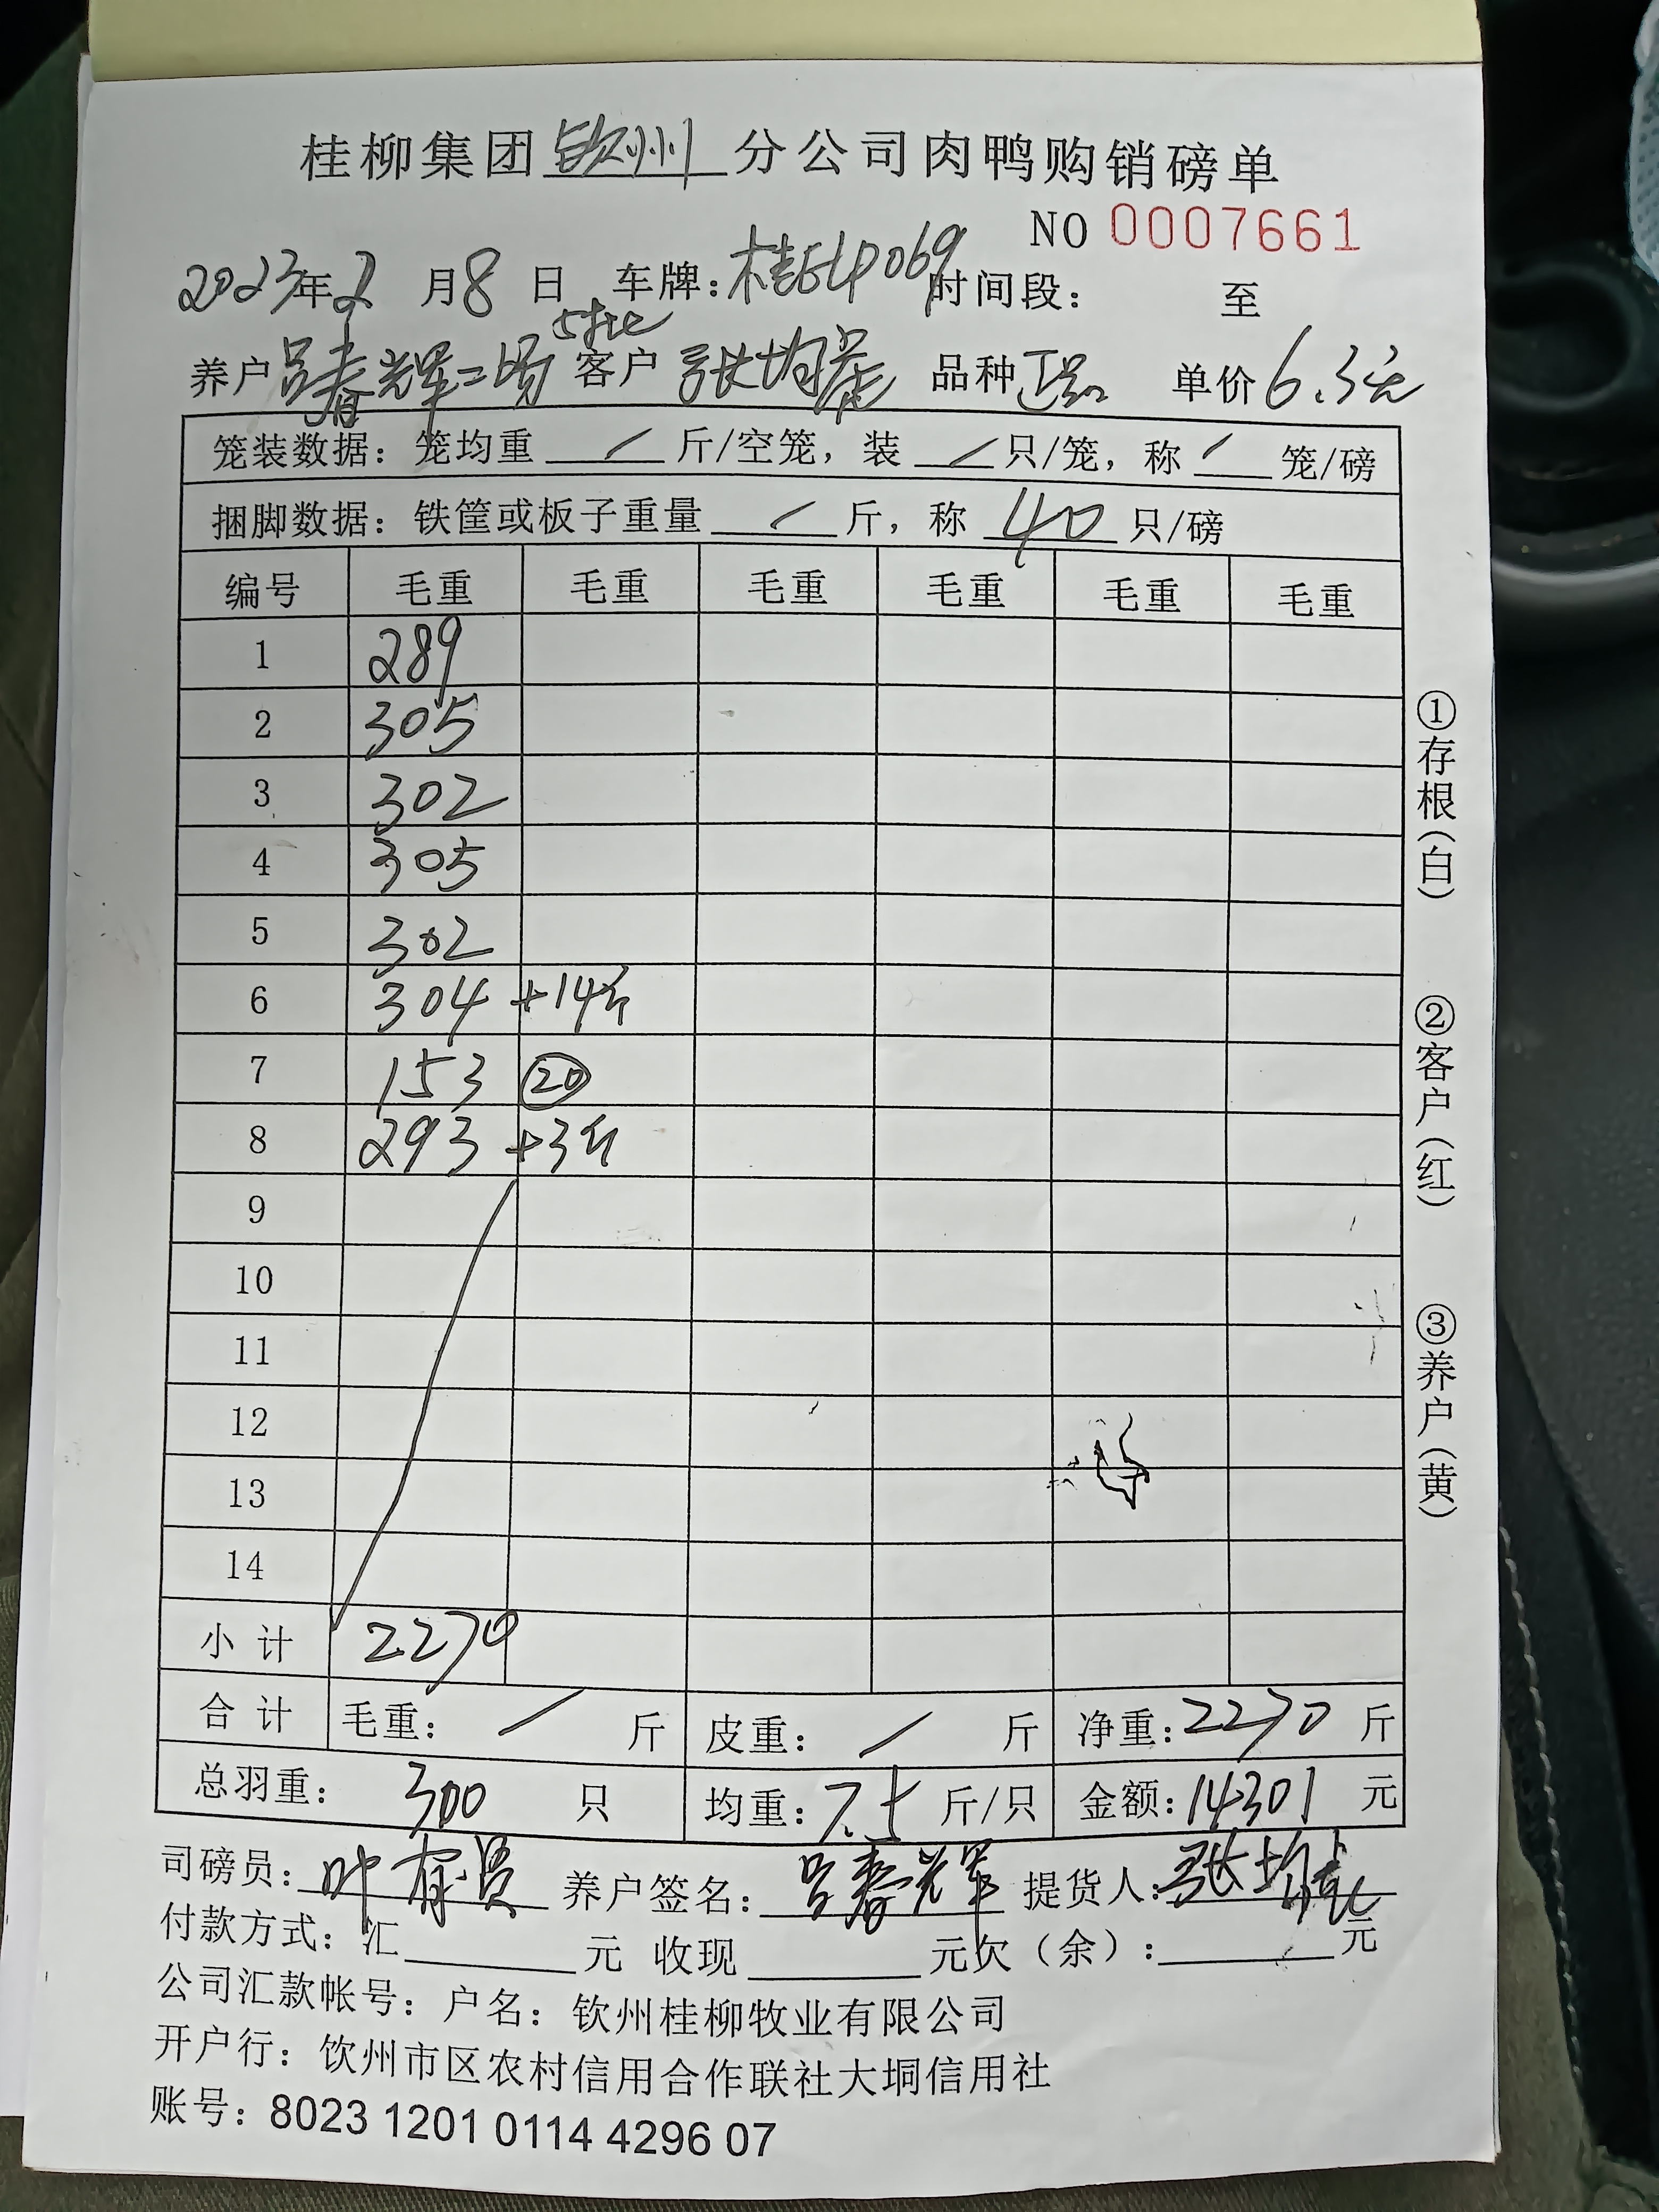 桂柳集团钦州分公司肉鸭购销磅单
NO 0007661
2023年2月8日 车牌:桂 069 时间段: 至
5批
养户吕春辉二场 客户 张均 品种正品 单价6.3元
笼装数据: 笼均重 / 斤/空笼, 装 / 只/笼, 称 / 笼/磅
捆脚数据: 铁筐或板子重量 / 斤, 称 40 只/磅
编号 毛重 毛重 毛重 毛重 毛重 毛重
1 289
2 305
3 302
4 305
5 302
6 304 +14斤
7 153 ⑳
8 293 +3斤
9
10
11
12
13
14
小计 2270
合计 毛重: / 斤 皮重: / 斤 净重:2270 斤
总羽重: 300 只 均重:7.5 斤/只 金额:14301 元
司磅员: 叶 贤 养户签名: 吕春辉 提货人:张均
付款方式: 汇 元 收现 元欠(余): 元
公司汇款帐号: 户名: 钦州桂柳牧业有限公司
开户行: 钦州市区农村信用合作联社大垌信用社
账号: 8023 1201 0114 4296 07
①存根(白)
②客户(红)
③养户(黄)